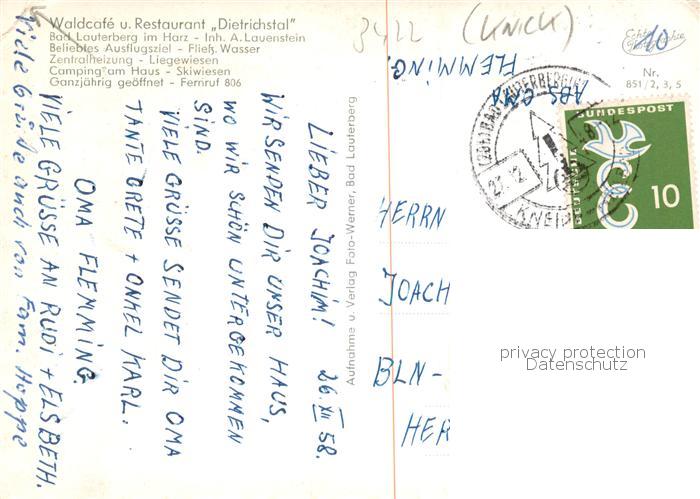 Waldcafé u. Restaurant „Dietrichstal"
Bad Lauterberg im Harz - Inh. A. Lauenstein
Beliebtes Ausflugsziel - Fließ. Wasser
Zentralheizung - Liegewiesen
Camping am Haus - Skiwesen
Ganzjährig geöffnet - Fernruf 806
3422 (KNICK)
10
Nr.
851/2, 3, 5
ABS. OMA
FLEMMING.
BUNDESPOST
10
LIEBER JOACHIM! 26. XII 58.
WIR SENDEN DIR UNSER HAUS,
WO WIR SCHÖN UNTERGEKOMMEN
SIND.
VIELE GRÜSSE SENDET DIR OMA
TANTE GRETE + ONKEL KARL.
OMA FLEMMING.
VIELE GRÜSSE AN RUDI + ELSBETH.
Viele Grüße auch von Fam. Hoppe
Aufnahme u. Verlag Foto-Werner, Bad Lauterberg
HERRN
JOACH
BLN-
HER
privacy protection
Datenschutz